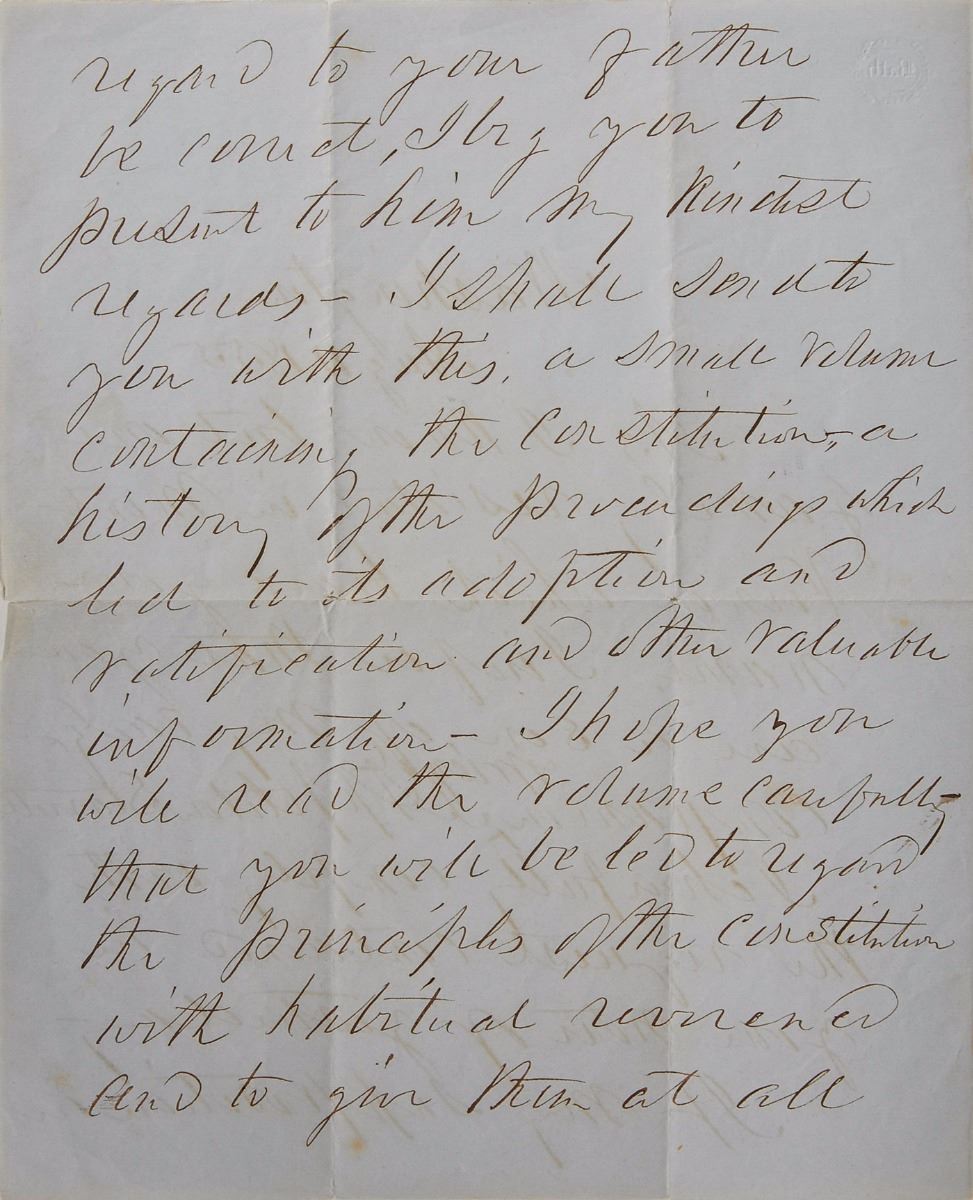 regard to your father
be correct, I beg you to
present to him my kindest
regards – I shall send to
you with this, a small volume
containing the Constitution, – a
history of the proceedings which
led to its adoption and
ratification and other valuable
information – I hope you
will read the volume carefully –
that you will be led to regard
the principles of the Constitution
with habitual reverence
and to give them at all